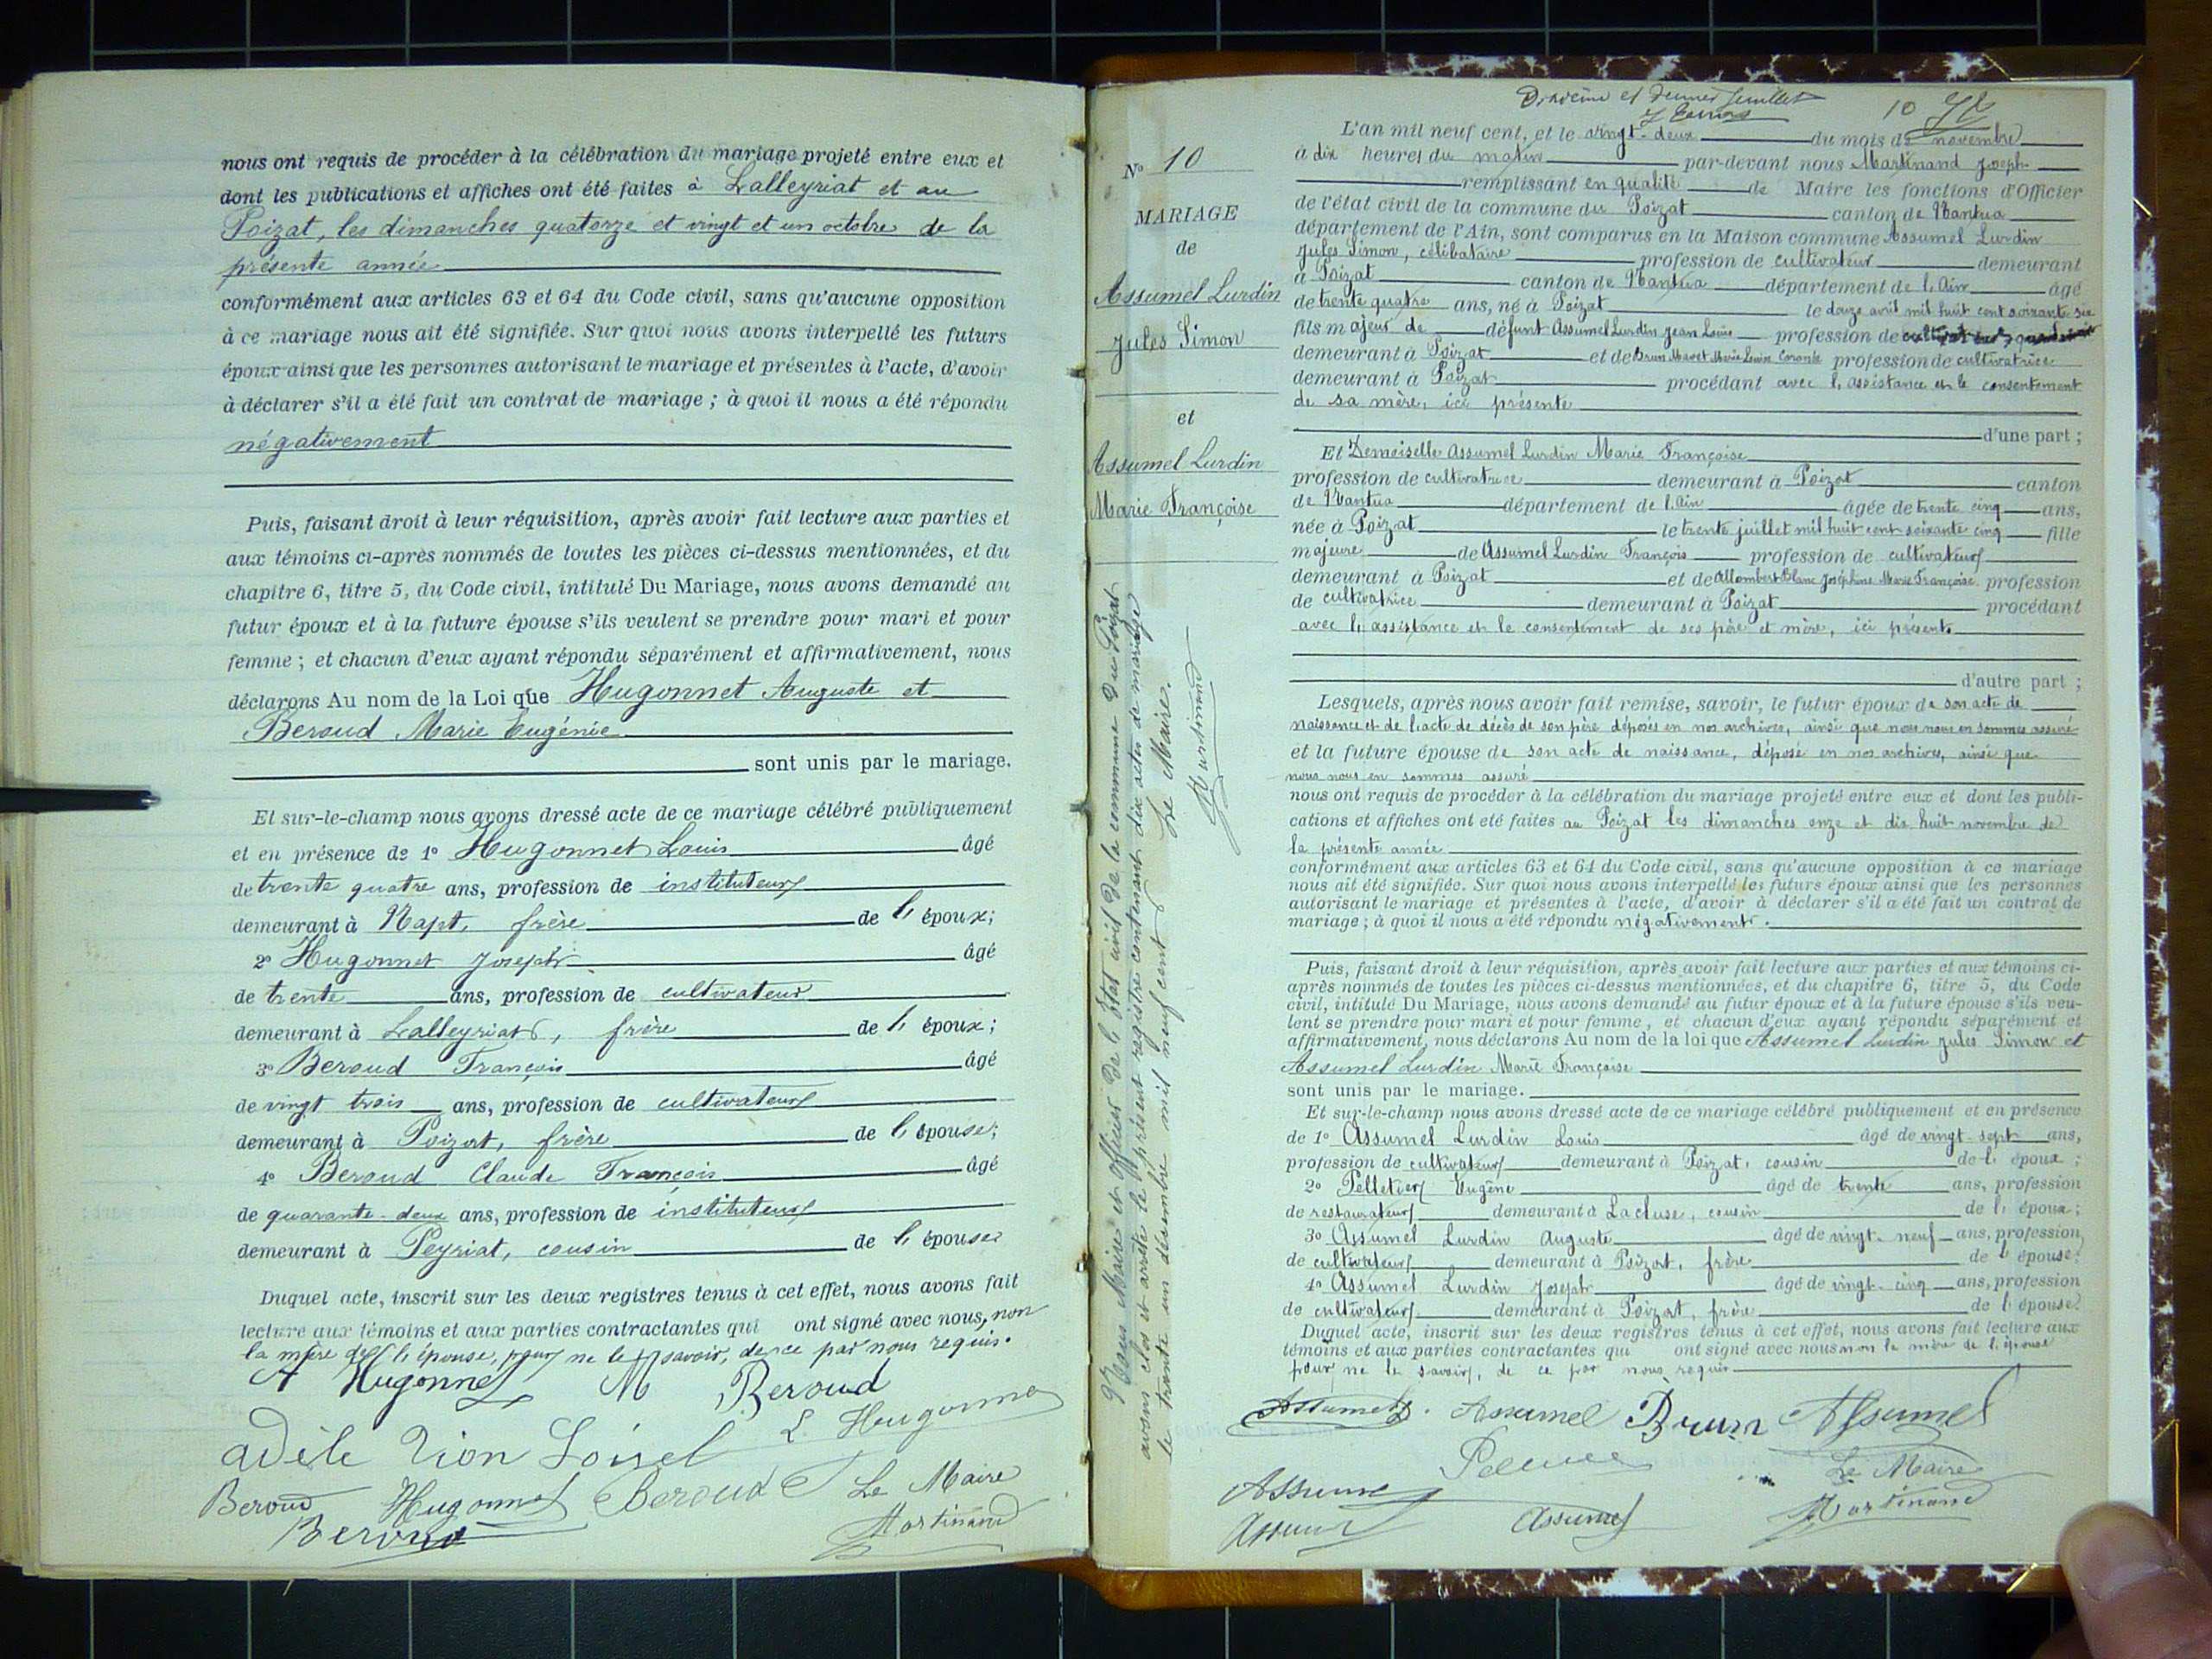 nous ont requis de procéder à la célébration du mariage projeté entre eux et
dont les publications et affiches ont été faites à Lalleyriat et au
Poizat, les dimanches quatorze et vingt et un octobre de la
présente année
conformément aux articles 63 et 64 du Code civil, sans qu'aucune opposition
à ce mariage nous ait été signifiée. Sur quoi nous avons interpellé les futurs
époux ainsi que les personnes autorisant le mariage et présentes à l'acte, d'avoir
à déclarer s'il a été fait un contrat de mariage ; à quoi il nous a été répondu
négativement
Puis, faisant droit à leur réquisition, après avoir fait lecture aux parties et
aux témoins ci-après nommés de toutes les pièces ci-dessus mentionnées, et du
chapitre 6, titre 5, du Code civil, intitulé Du Mariage, nous avons demandé au
futur époux et à la future épouse s'ils veulent se prendre pour mari et pour
femme ; et chacun d'eux ayant répondu séparément et affirmativement, nous
déclarons Au nom de la Loi que Hugonnet Auguste et
Beroud Marie Eugénie
sont unis par le mariage.
Et sur-le-champ nous avons dressé acte de ce mariage célébré publiquement
et en présence de 1° Hugonnet Louis âgé
de trente quatre ans, profession de instituteur
demeurant à Napt, frère de l' époux;
2° Hugonnet Joseph âgé
de trente ans, profession de cultivateur
demeurant à Lalleyriat, frère de l' époux ;
3° Beroud François âgé
de vingt trois ans, profession de cultivateur
demeurant à Poizat, frère de l' épouse;
4° Beroud Claude François âgé
de quarante-deux ans, profession de instituteur
demeurant à Peyriat, cousin de l' épouse
Duquel acte, inscrit sur les deux registres tenus à cet effet, nous avons fait
lecture aux témoins et aux parties contractantes qui ont signé avec nous, non
la mère de l'épouse, pour ne le savoir, de ce par nous requis.
A Hugonnet M Beroud
adèle Vion Loisel L. Hugonnet
Beroud Hugonnet Beroud Le Maire
Beroud Martinand
et dernier feuillet
10
N° 10
MARIAGE
de
Assumel Lurdin
Jules Simon
et
Assumel Lurdin
Marie Françoise
Nous Maire et officier de l'état civil de la commune du Poizat
avons clos et arrêté le présent registre contenant dix actes de mariage
le trente un décembre mil neuf cent Le Maire.
Martinand
L'an mil neuf cent, et le vingt-deux du mois de novembre
à dix heures du matin par-devant nous Martinand Joseph
remplissant en qualité de Maire les fonctions d'Officier
de l'état civil de la commune du Poizat canton de Nantua
département de l'Ain, sont comparus en la Maison commune Assumel Lurdin
Jules Simon, célibataire profession de cultivateur demeurant
à Poizat canton de Nantua département de l'Ain âgé
de trente quatre ans, né à Poizat le douze avril mil huit cent soixante six
fils majeur de défunt Assumel Lurdin Jean Louis profession de
demeurant à Poizat et de Brun Mavet Marie profession de cultivatrice
demeurant à Poizat procédant avec l'assistance et le consentement
de sa mère, ici présente
d'une part ;
Et Demoiselle Assumel Lurdin Marie Françoise
profession de cultivatrice demeurant à Poizat canton
de Nantua département de l'Ain âgée de trente cinq ans,
née à Poizat le trente juillet mil huit cent soixante cinq fille
majeure de Assumel Lurdin François profession de cultivateur
demeurant à Poizat et de Allombert Blanc Joséphine Marie Françoise profession
de cultivatrice demeurant à Poizat procédant
avec l'assistance et le consentement de ses père et mère, ici présents
d'autre part ;
Lesquels, après nous avoir fait remise, savoir, le futur époux de son acte de
naissance et de l'acte de décès de son père déposés en nos archives, ainsi que nous nous en sommes assuré
et la future épouse de son acte de naissance, déposé en nos archives, ainsi que
nous nous en sommes assuré
nous ont requis de procéder à la célébration du mariage projeté entre eux et dont les publi-
cations et affiches ont été faites au Poizat les dimanches onze et dix huit novembre de
la présente année
conformément aux articles 63 et 64 du Code civil, sans qu'aucune opposition à ce mariage
nous ait été signifiée. Sur quoi nous avons interpellé les futurs époux ainsi que les personnes
autorisant le mariage et présentes à l'acte, d'avoir à déclarer s'il a été fait un contrat de
mariage ; à quoi il nous a été répondu négativement.
Puis, faisant droit à leur réquisition, après avoir fait lecture aux parties et aux témoins ci-
après nommés de toutes les pièces ci-dessus mentionnées, et du chapitre 6, titre 5, du Code
civil, intitulé Du Mariage, nous avons demandé au futur époux et à la future épouse s'ils veu-
lent se prendre pour mari et pour femme, et chacun d'eux ayant répondu séparément et
affirmativement, nous déclarons Au nom de la loi que Assumel Lurdin Jules Simon et
Assumel Lurdin Marie Françoise
sont unis par le mariage.
Et sur-le-champ nous avons dressé acte de ce mariage célébré publiquement et en présence
de 1° Assumel Lurdin Louis âgé de vingt-sept ans,
profession de cultivateur demeurant à Poizat, cousin de l' époux ;
2° Pelletier Eugène âgé de trente ans, profession
de restaurateur demeurant à La cluse, cousin de l' époux ;
3° Assumel Lurdin Auguste âgé de vingt-neuf ans, profession
de cultivateur demeurant à Poizat, frère de l' épouse;
4° Assumel Lurdin Joseph âgé de vingt-cinq ans, profession
de cultivateur demeurant à Poizat, frère de l' épouse.
Duquel acte, inscrit sur les deux registres tenus à cet effet, nous avons fait lecture aux
témoins et aux parties contractantes qui ont signé avec nous non la mère de l'épouse
pour ne le savoir, de ce par nous requis
Assumel Assumel Brun Assumel
Assumel Le Maire
Assumel Assumel Martinand